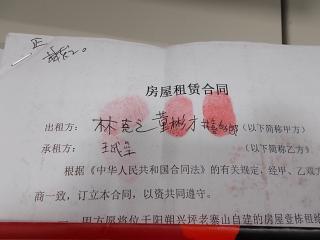 房屋租赁合同
出租方：林 之 董彬才 （以下简称甲方）
承租方：王 （以下简称乙方）
根据《中华人民共和国合同法》的有关规定，经甲、乙
商一致，订立本合同，以资共同遵守。
一、甲方愿将位于阳朔兴坪老寨山自建的房屋壹栋租给